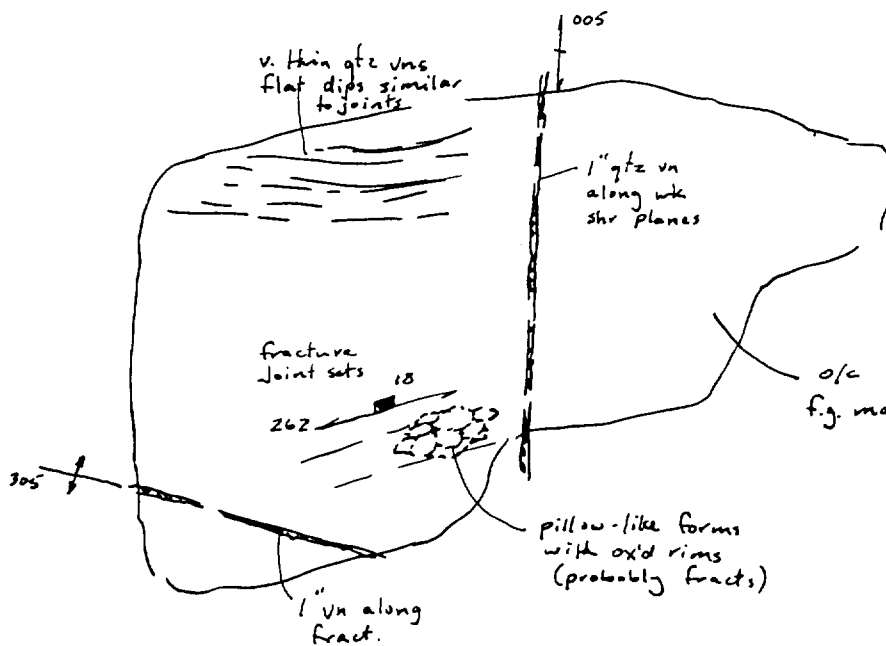 005
v. thin qtz vns
flat dips similar
to joints
1" qtz vn
along wk
shr planes
fracture
Joint sets
18
262
o/c
f.g.
305
pillow-like forms
with ox'd rims
(probably fracts)
1" vn along
fract.